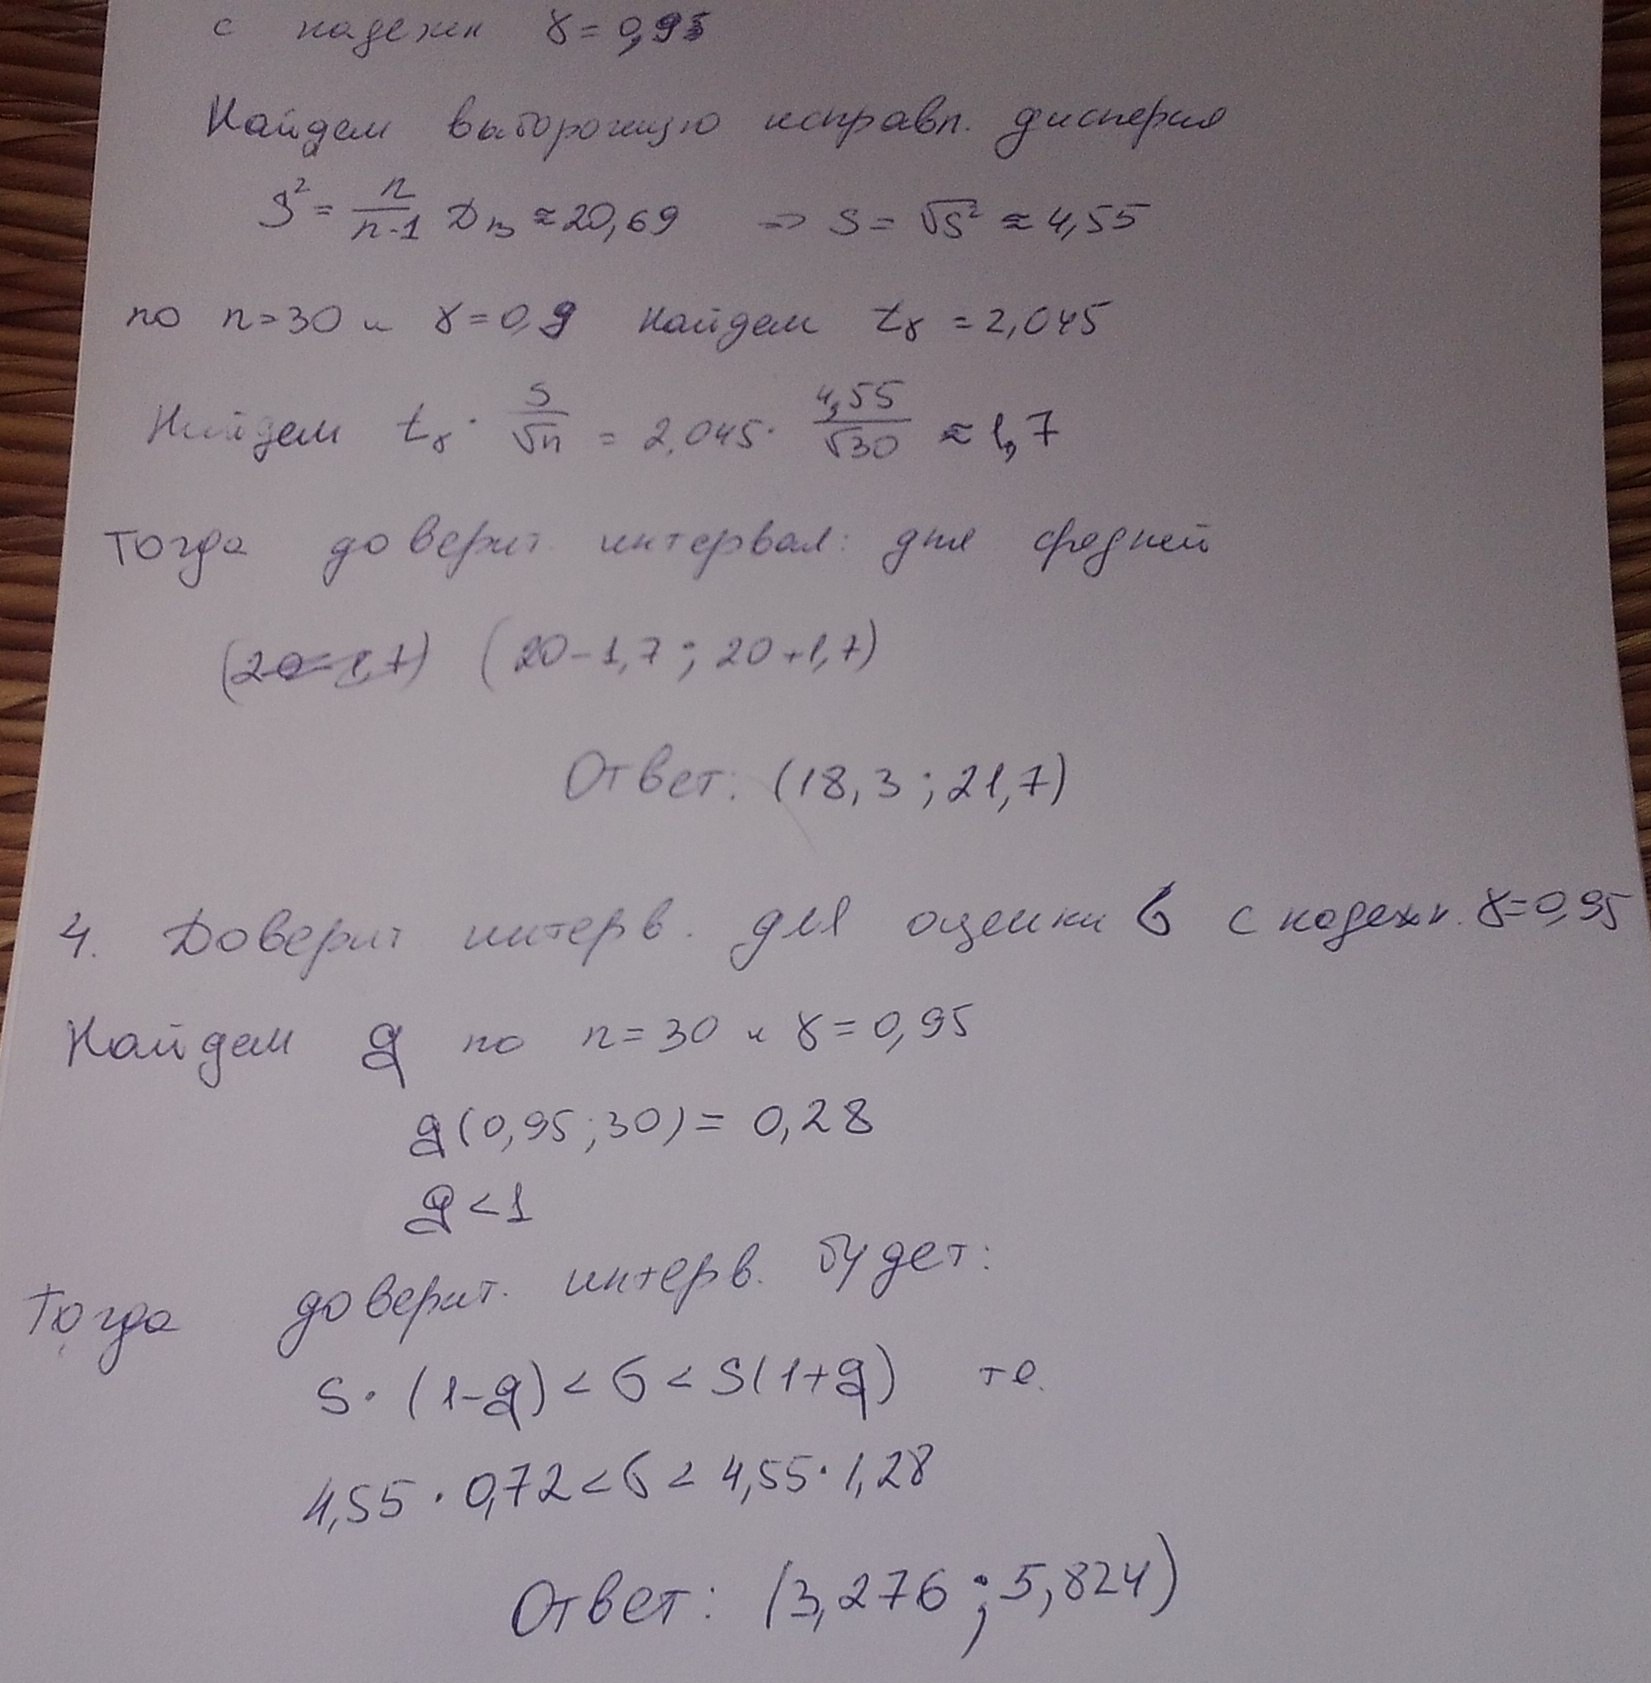 с надежн γ = 0,95
Найдем выборочную исправл. дисперсию
S² = n/(n-1) Dв ≈ 20,69 => S = √S² ≈ 4,55
по n=30 и γ=0,9 найдем tγ = 2,045
Найдем tγ · S/√n = 2,045 · 4,55/√30 ≈ 1,7
Тогда доверит. интервал: для средней
(20-1,7) (20-1,7 ; 20+1,7)
Ответ: (18,3 ; 21,7)
4. Доверит интерв. для оценки σ с надежн. γ=0,95
Найдем q по n=30 и γ=0,95
q(0,95;30) = 0,28
q<1
Тогда доверит. интерв. будет:
S·(1-q)<σ<S(1+q) т.е.
4,55·0,72<σ<4,55·1,28
Ответ: (3,276 ; 5,824)